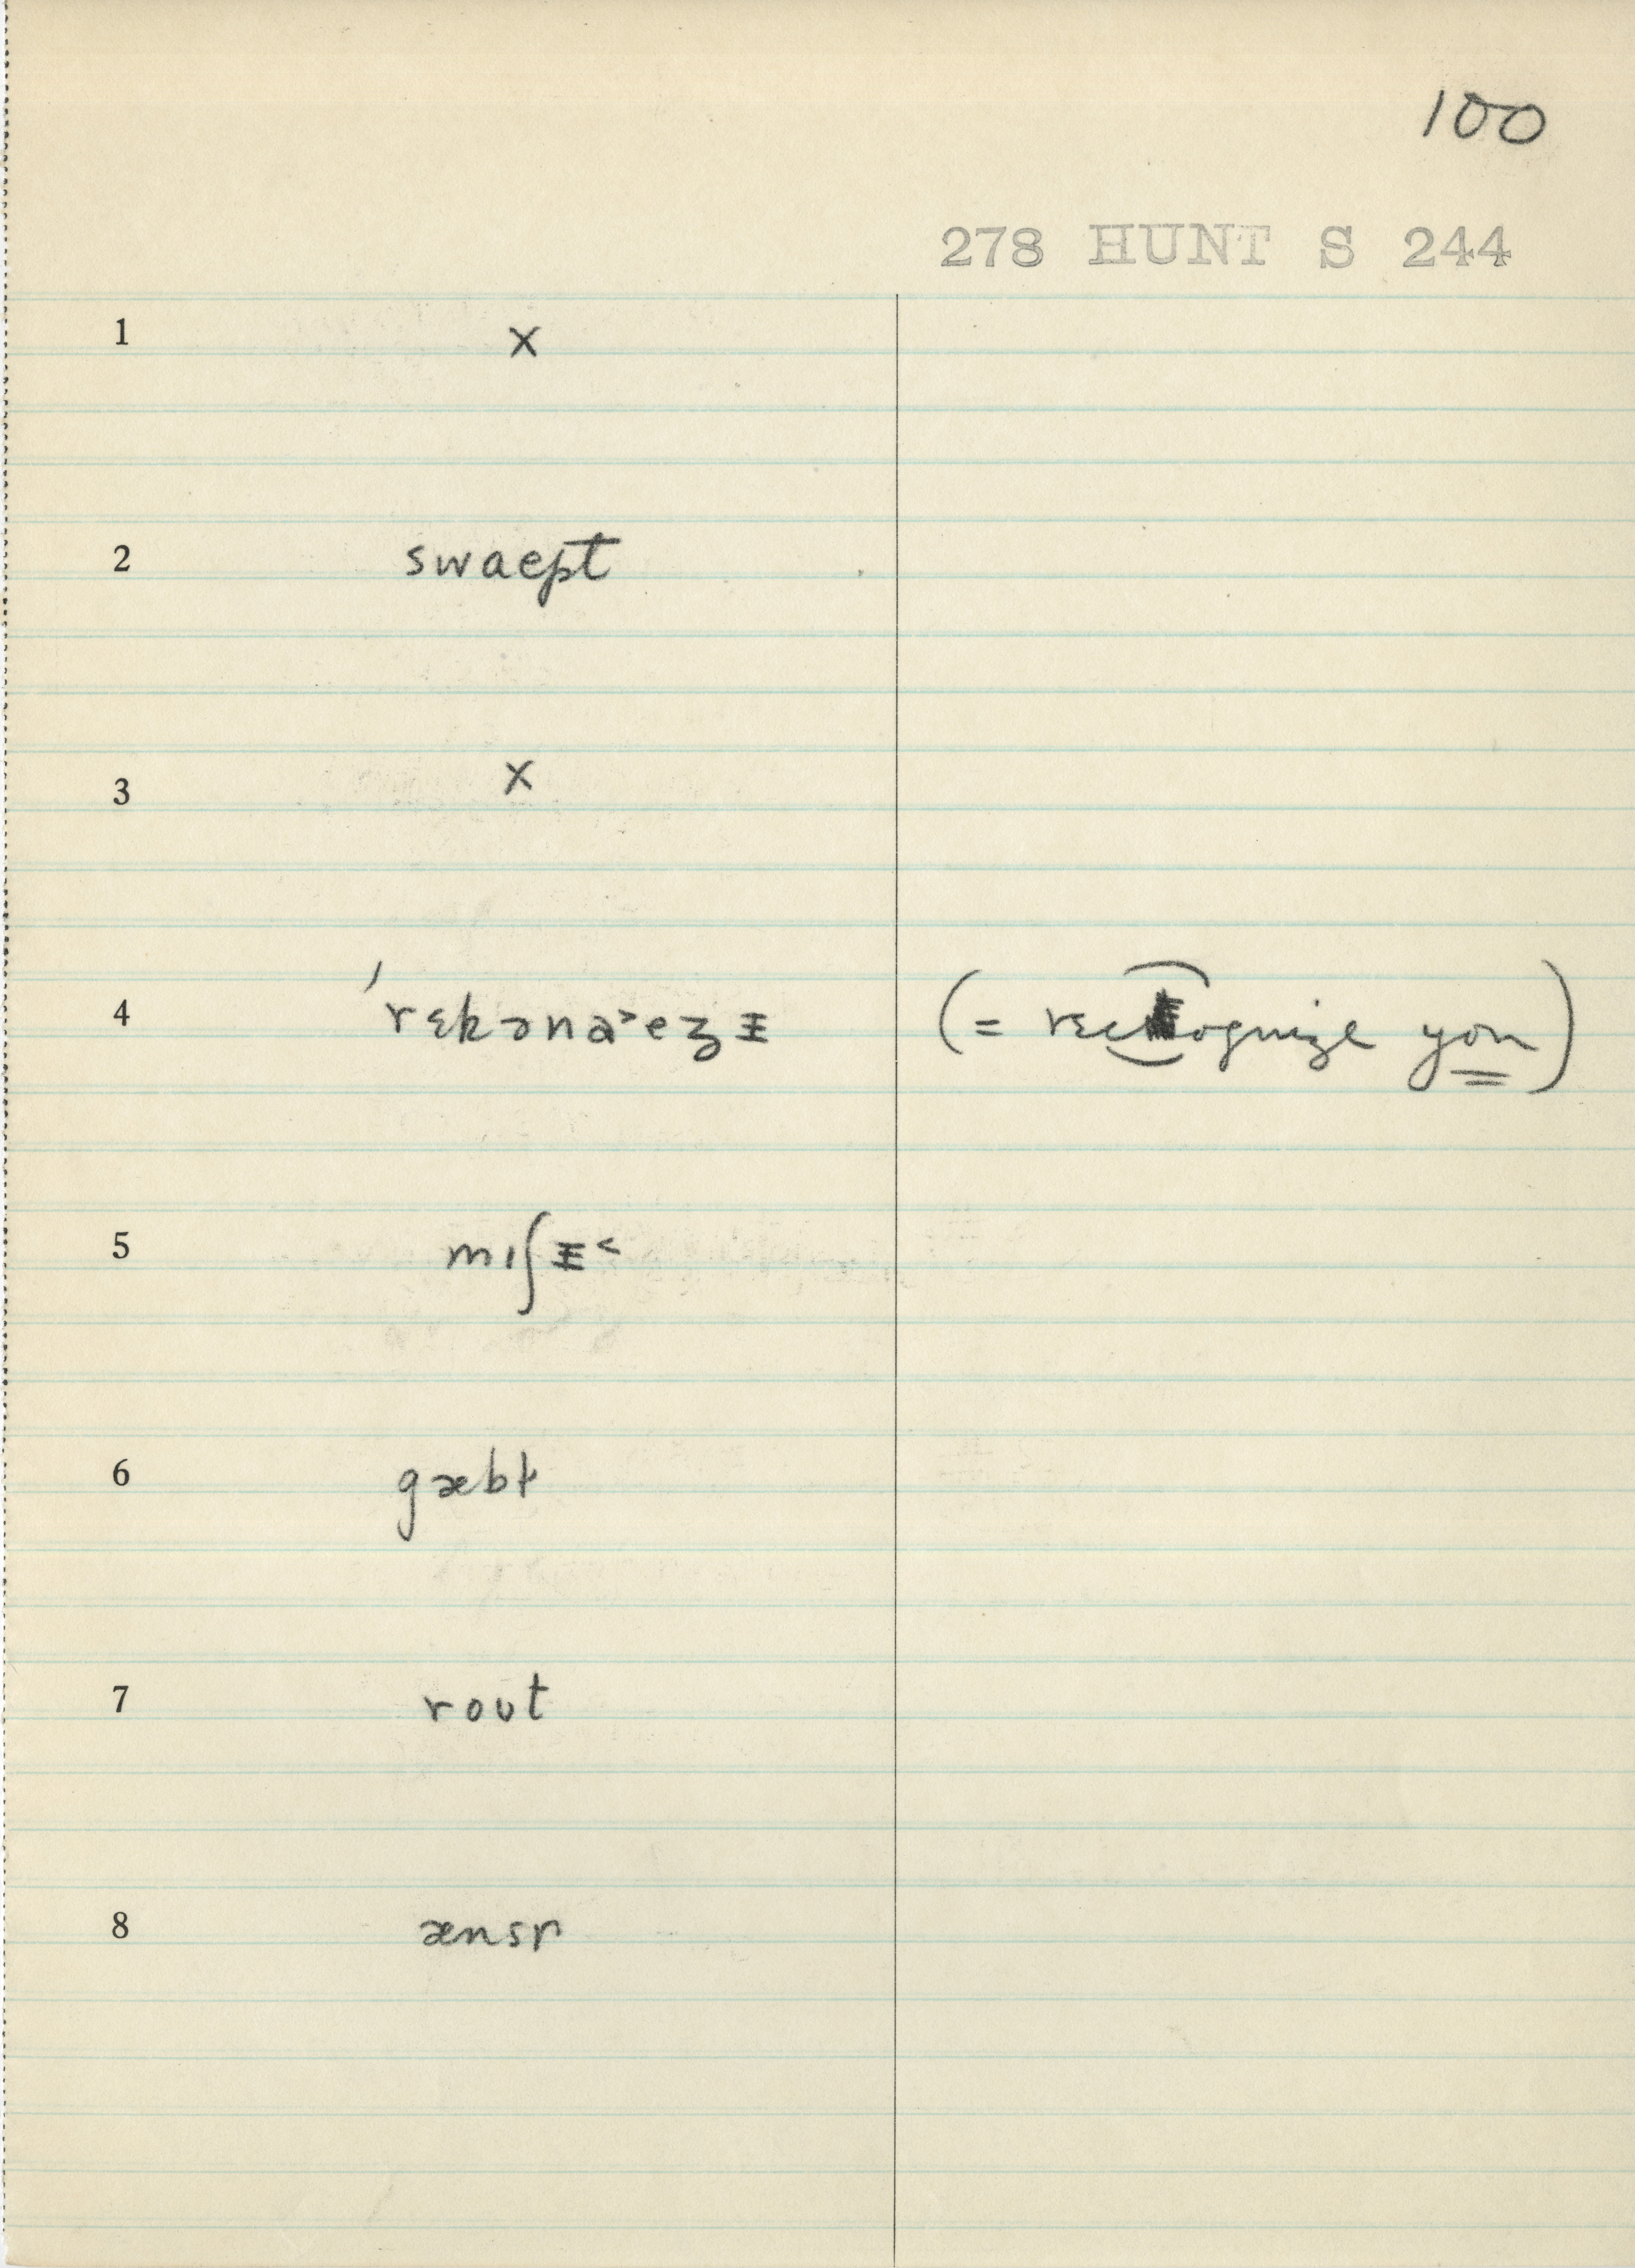 100
278 HUNT S 244
1 x
2 swaept
3 x
4 ˈrɛkəna˃eʒɪ̵ (= recognize you)
5 mıʃɪ̵˂
6 gæbɫ
7 roʊt
8 ænsr